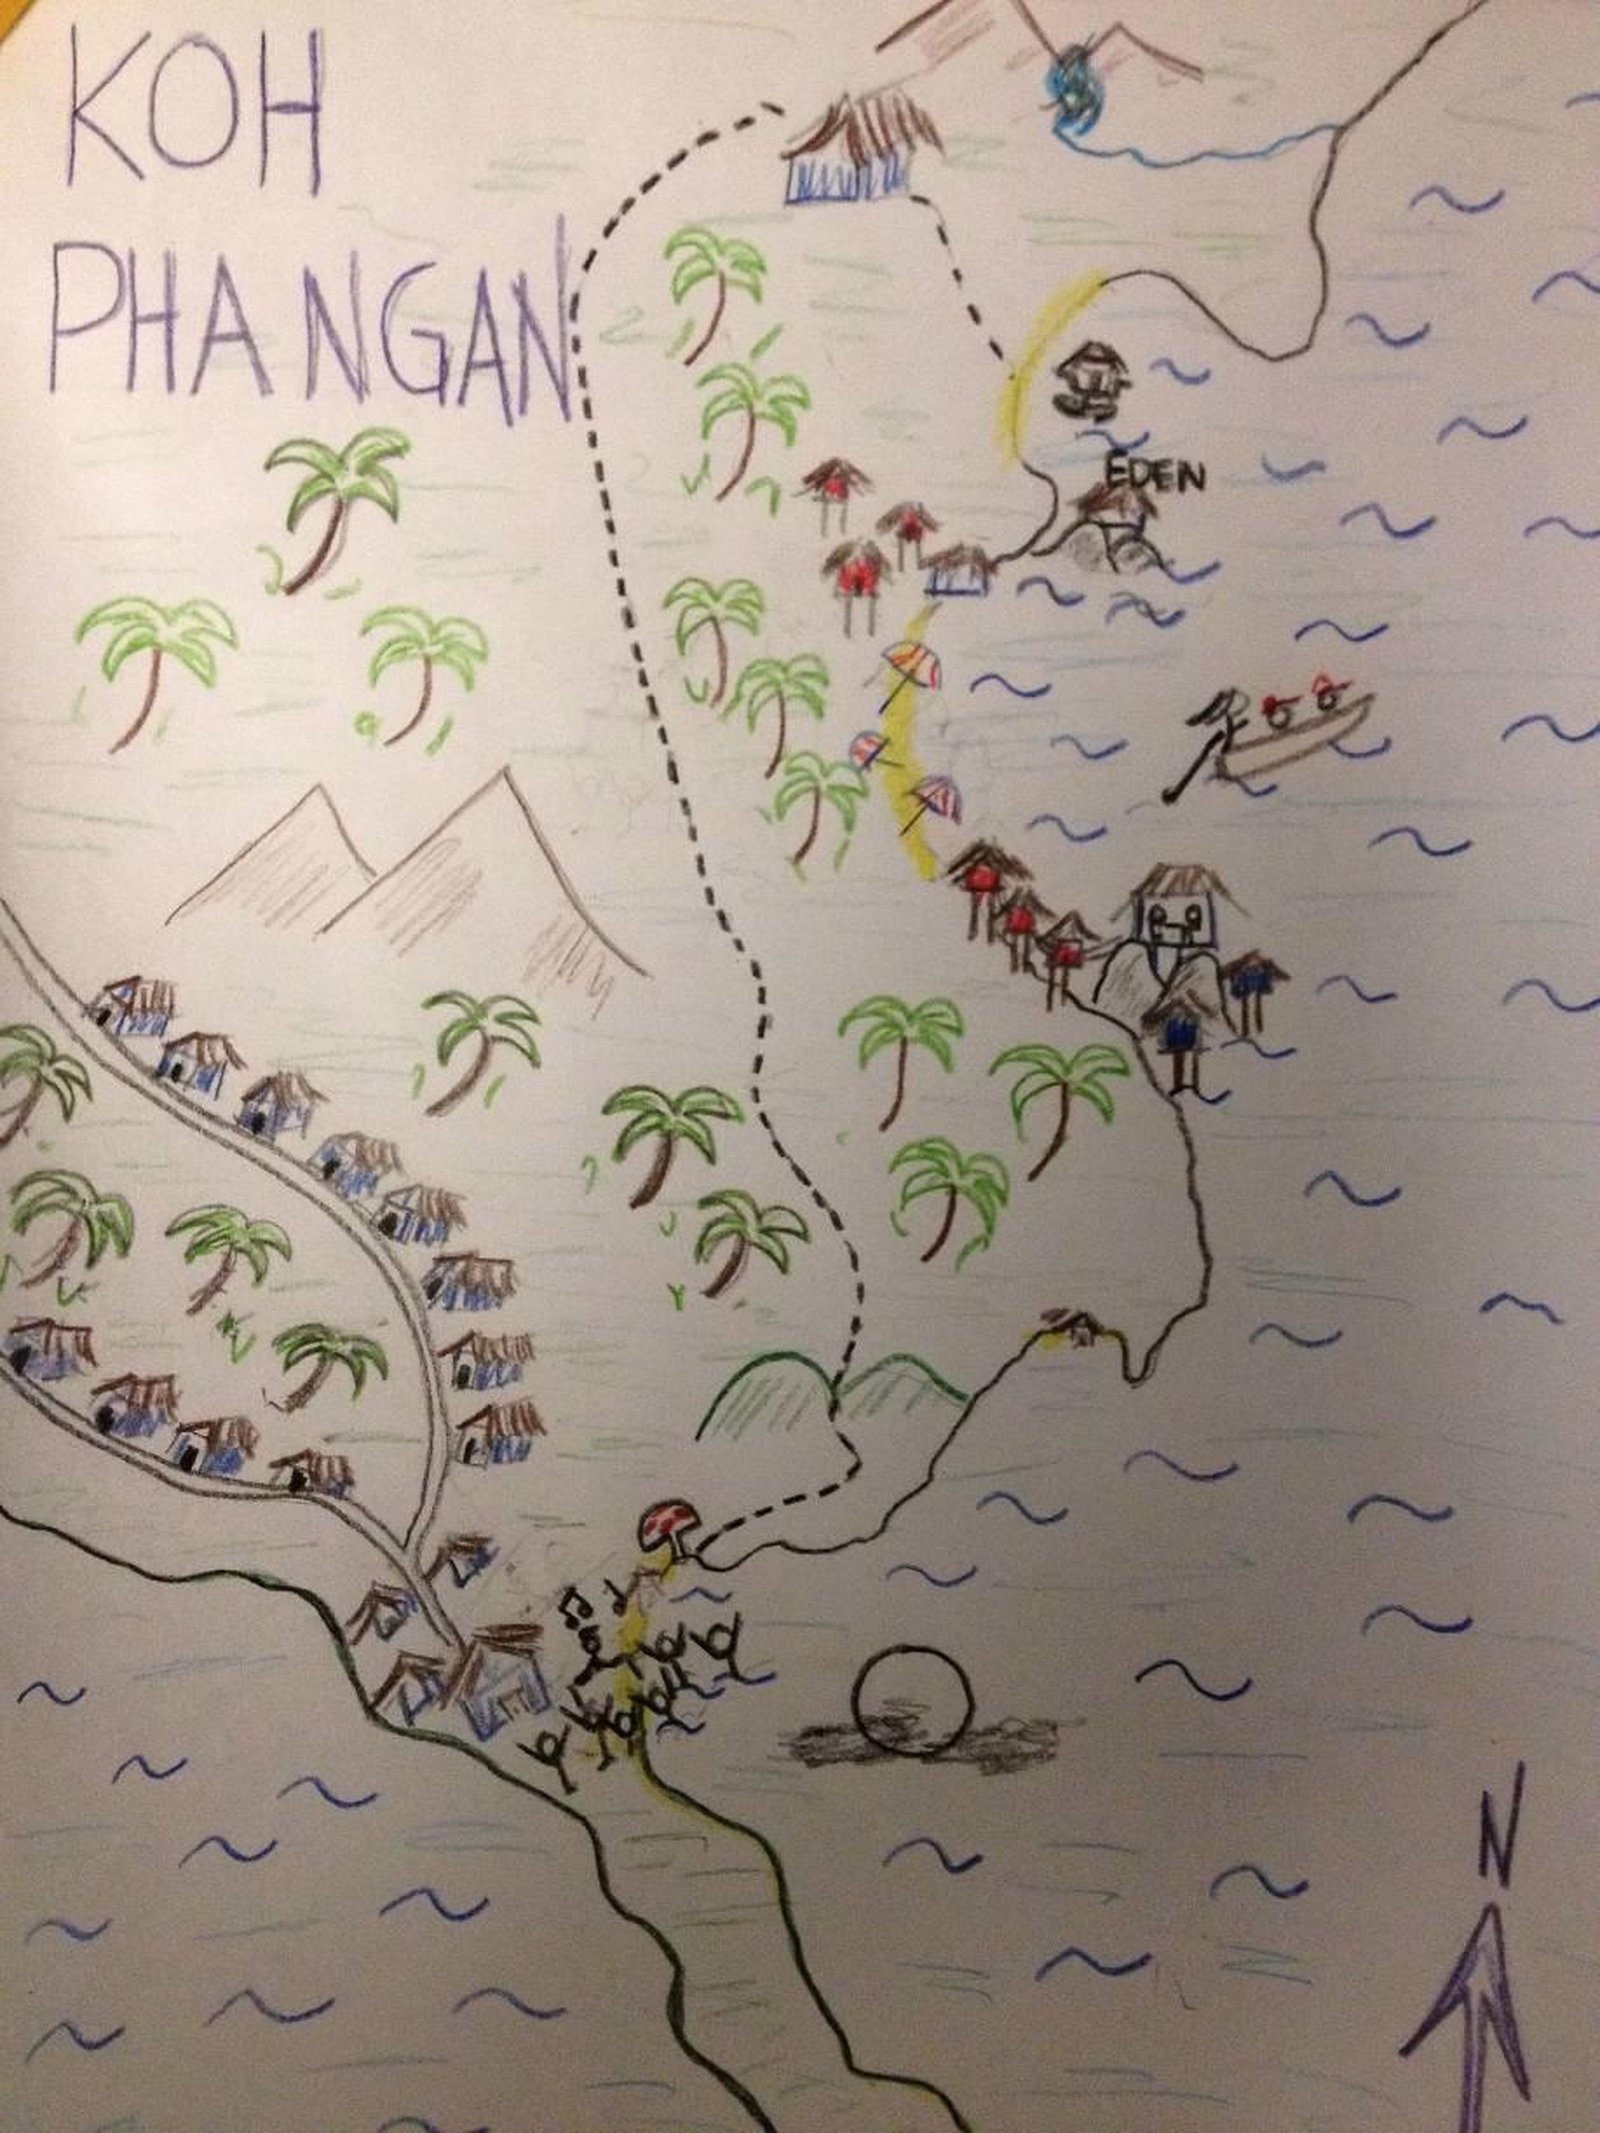 KOH
PHANGAN
EDEN
N